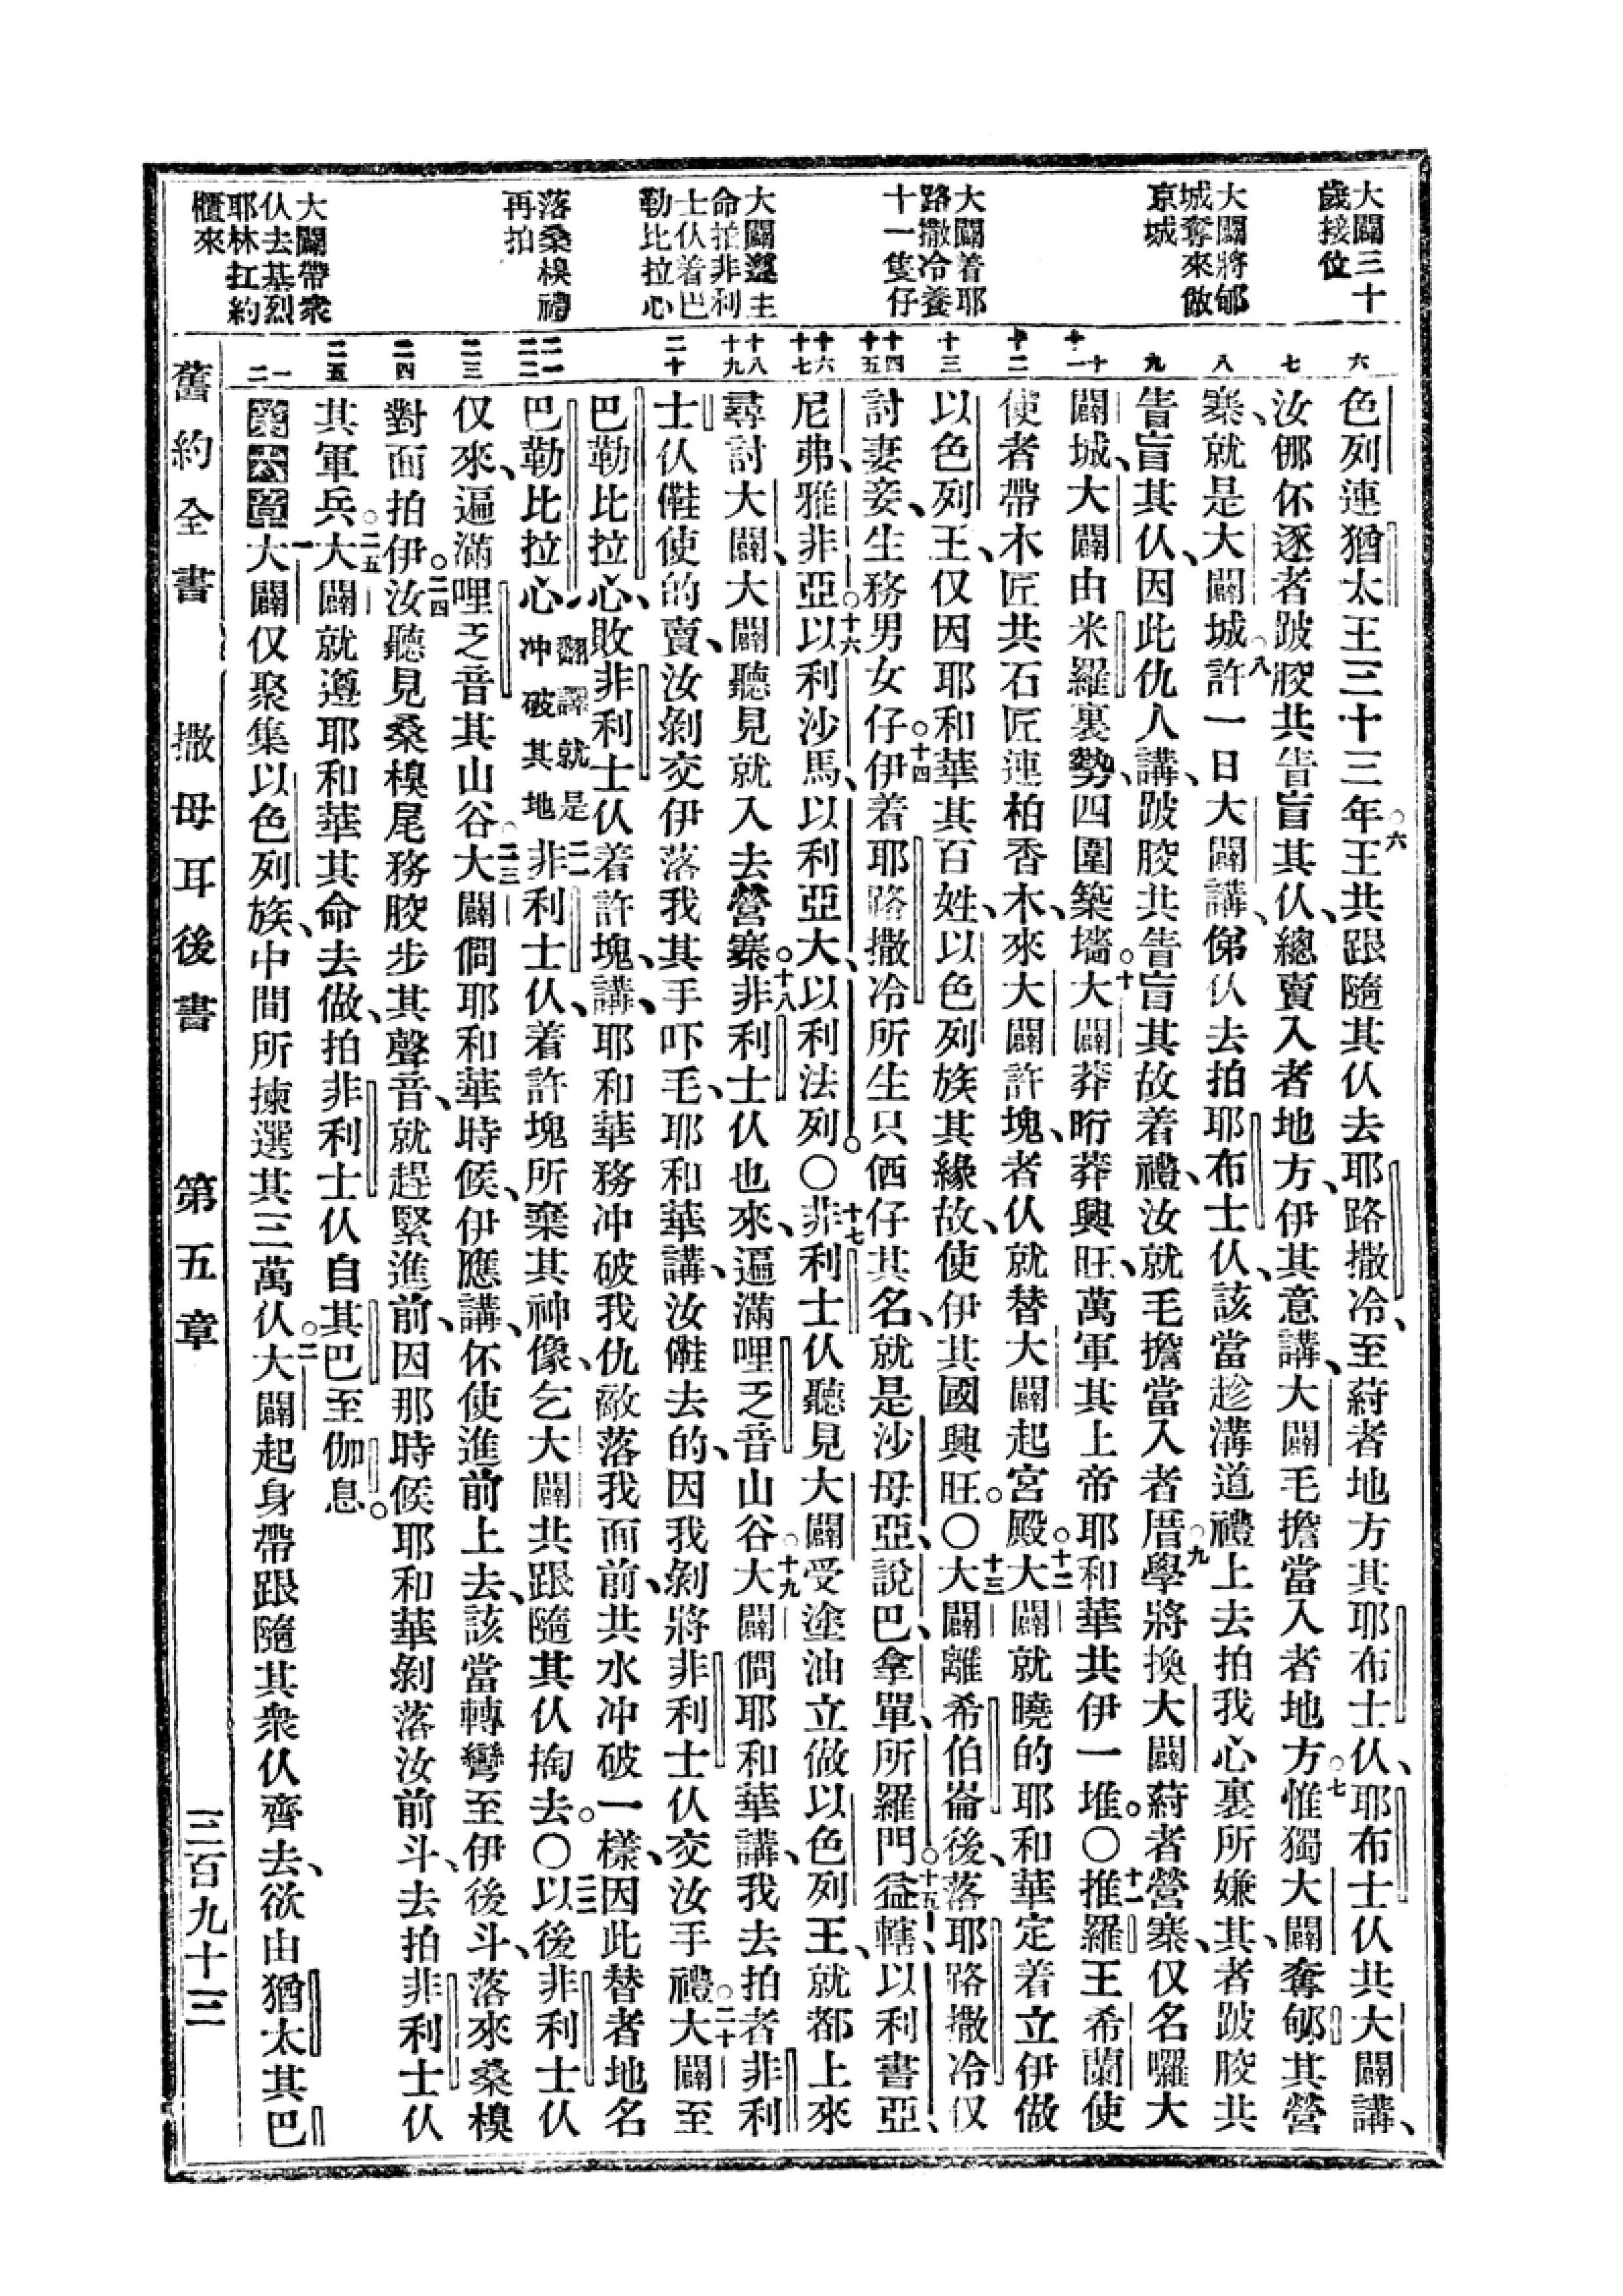 大闢三十
歲接位
大闢將郇
城奪來做
京城
大闢着耶
路撒冷養
十一隻仔
大闢遵主
命拍非利
士仈着巴
勒比拉心
落桑模禮
再拍
大闢帶衆
仈去基烈
耶林扛約
櫃來
六
七
八
九
十
十一
十二
十三
十四
十五
十六
十七
十八
十九
二十
二一
二二
二三
二四
二五
一
二
色列連猶太王三十三年○六王共跟隨其仈去耶路撒冷、至葑者地方其耶布士仈、耶布士仈共大闢講、
汝㑚伓逐者跛骹共眚盲其仈、總賣入者地方、伊其意講、大闢毛擔當入者地方○七惟獨大闢奪郇其營
寨、就是大闢城○八許一日大闢講、俤仈去拍耶布士仈、該當趁溝道禮上去拍我心裏所嫌其、其者跛骹共
眚盲其仈、因此仇人講、跛骹共眚盲其故着禮、汝就毛擔當入者厝○九學將換大闢葑者營寨、仅名囉大
闢城、大闢由米羅裏勢、四圍築墻○十大闢莽昕莽興旺、萬軍其上帝耶和華共伊一堆○○十一推羅王希蘭使
使者帶木匠共石匠連柏香木、來大闢許塊、者仈就替大闢起宮殿○十二大闢就曉的耶和華定着立伊做
以色列王、仅因耶和華其百姓、以色列族其緣故、使伊其國興旺○○十三大闢離希伯崙後、落耶路撒冷仅
討妻妾、生務男女仔○十四伊着耶路撒冷所生只㑚仔其名、就是沙母亞、說巴、拿單、所羅門○十五益轄、以利書亞、
尼弗、雅非亞○十六以利沙馬、以利亞大、以利法列○○十七非利士仈聽見大闢受塗油立做以色列王、就都上來
尋討大闢、大闢聽見就入去營寨○十八非利士仈也來、遍滿哩乏音山谷○十九大闢僴耶和華講、我去拍者非利
士仈儺使的賣、汝剝交伊落我其手吓毛、耶和華講、汝儺去的、因我剝將非利士仈交汝手禮○二十大闢至
巴勒比拉心、敗非利士仈着許塊、講、耶和華務冲破我仇敵落我面前、共水冲破一樣、因此替者地名
巴勒比拉心、翻譯就是冲破其地二一非利士仈、着許塊所棄其神像、乞大闢共跟隨其仈掏去○○二二以後非利士仈
仅來、遍滿哩乏音其山谷○二三大闢僴耶和華時候、伊應講、伓使進前上去、該當轉彎至伊後斗、落來桑模
對面拍伊○二四汝聽見桑模尾務骹步其聲音、就趕緊進前、因那時候耶和華剝落汝前斗、去拍非利士仈
其軍兵○二五大闢就遵耶和華其命去做、拍非利士仈自其巴至伽息○
第六章一大闢仅聚集以色列族、中間所揀選其三萬仈○二大闢起身帶跟隨其衆仈齊去、欲由猶太其巴
舊約全書 撒母耳後書 第五章 三百九十三